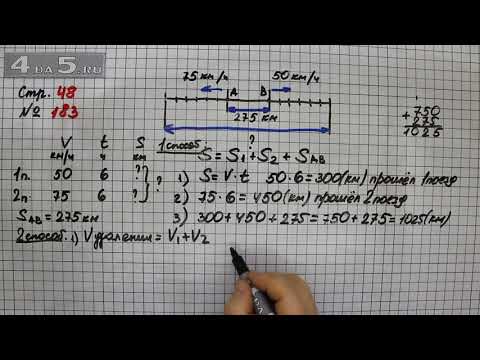 4 DA 5.RU
Стр. 48
№ 183
75 км/ч
50 км/ч
A B
275 км
?
+ 750
275
1025
V t S
км/ч ч км
1п. 50 6 ?
2п. 75 6 ?
?
S АВ = 275 км
1 способ:
S = S1 + S2 + S АВ
1) S = V · t 50 · 6 = 300 (км) прошёл 1 поезд
2) 75 · 6 = 450 (км) прошёл 2 поезд
3) 300 + 450 + 275 = 750 + 275 = 1025 (км)
2 способ: 1) V удаления = V1 + V2